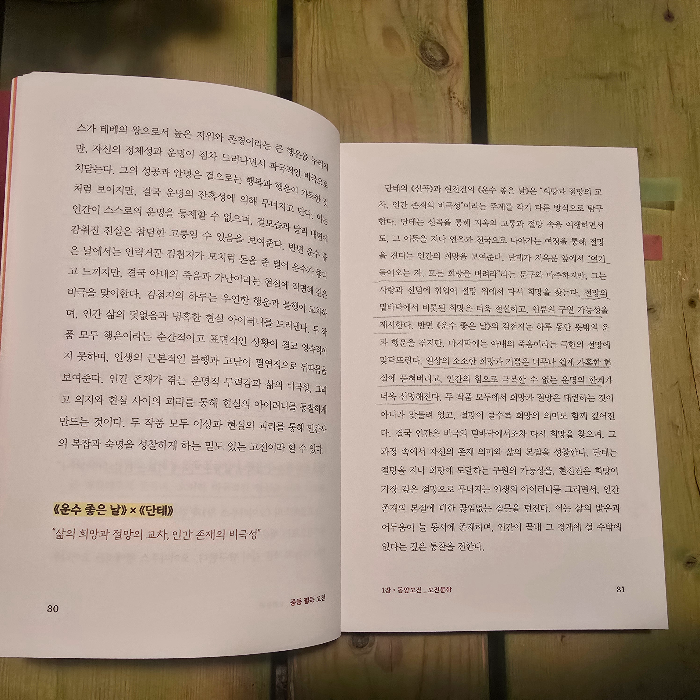 스가 테베의 왕으로서 높은 지위와 존경이라는 큰 행운을 누리지
만, 자신의 정체성과 운명이 점차 드러나면서 파국적인 비극으로
치닫는다. 그의 성공과 안녕은 겉으로는 행복과 행운이 가득한 것
처럼 보이지만, 결국 운명의 잔혹성에 의해 무너지고 만다. 이는
인간이 스스로의 운명을 통제할 수 없으며, 겉모습과 달리 내면에
감춰진 진실은 참담한 고통일 수 있음을 보여준다. 반면 운수 좋
은 날에서는 인력거꾼 김첨지가 모처럼 돈을 번 날에 운수가 좋다
고 느끼지만, 결국 아내의 죽음과 가난이라는 현실에 직면해 깊은
비극을 맞이한다. 김첨지의 하루는 우연한 행운과 불행이
며, 인간 삶의 덧없음과 냉혹한 현실 아이러니를 드러낸다. 두 작
품 모두 행운이라는 순간적이고 표면적인 상황이 결코
지 못하며, 인생의 근본적인 불행과 고난이 필연적으로
보여준다. 인간 존재가 겪는 운명적 무력감과 삶의 비극성, 그리
고 의지와 현실 사이의 괴리를 통해 현실의 아이러니를 통찰하게
만드는 것이다. 두 작품 모두 이상과 현실의 괴리를 통해
의 복잡과 숙명을 성찰하게 하는 밀도 있는 고전이라 할 수 있다.
《운수 좋은 날》×《단테》
"삶의 희망과 절망의 교차, 인간 존재의 비극성"
80
단테의 《신곡》과 현진건의 《운수 좋은 날》은 "희망과 절망의 교
차, 인간 존재의 비극성"이라는 주제를 각기 다른 방식으로 탐구
한다. 단테는 신곡을 통해 지옥의 고통과 절망 속을 여행하면서
도, 그 어둠을 지나 연옥과 천국으로 나아가는 여정을 통해 절망
을 견디는 인간의 희망을 보여준다. 단테가 지옥문 앞에서 "여기
들어오는 자, 모든 희망을 버려라"라는 문구와 마주하지만, 그는
사랑과 신념에 힘입어 절망 위에서 다시 희망을 찾는다. 절망의
밑바닥에서 비롯된 희망은 더욱 절실하고, 인류의 구원 가능성을
제시한다. 반면 《운수 좋은 날》의 김첨지는 하루 동안 뜻밖의 운
과 행운을 얻지만, 마지막에는 아내의 죽음이라는 극한의 절망에
맞닥뜨린다. 일상의 소소한 희망과 기쁨은 너무나 쉽게 가혹한 현
실에 부딪혀버리고, 인간의 힘으로 극복할 수 없는 운명의 한계가
더욱 선명해진다. 두 작품 모두에서 희망과 절망은 대립하는 것이
아니라 맞물려 있고, 절망이 깊을수록 희망의 의미도 함께 깊어진
다. 결국 인간은 비극의 밑바닥에서조차 다시 희망을 찾으며, 그
과정 속에서 자신의 존재 의미와 삶의 본질을 성찰한다. 단테는
절망을 지나 희망에 도달하는 구원의 가능성을, 현진건은 희망이
가장 깊은 절망으로 무너지는 인생의 아이러니를 그리면서, 인간
존재의 본질에 대한 끊임없는 질문을 던진다. 이는 삶의 밝음과
어두움이 늘 동시에 존재하며, 인간이 끝내 그 경계에 설 수밖에
없다는 깊은 통찰을 전한다.
1장·동양고전_고전문학
81